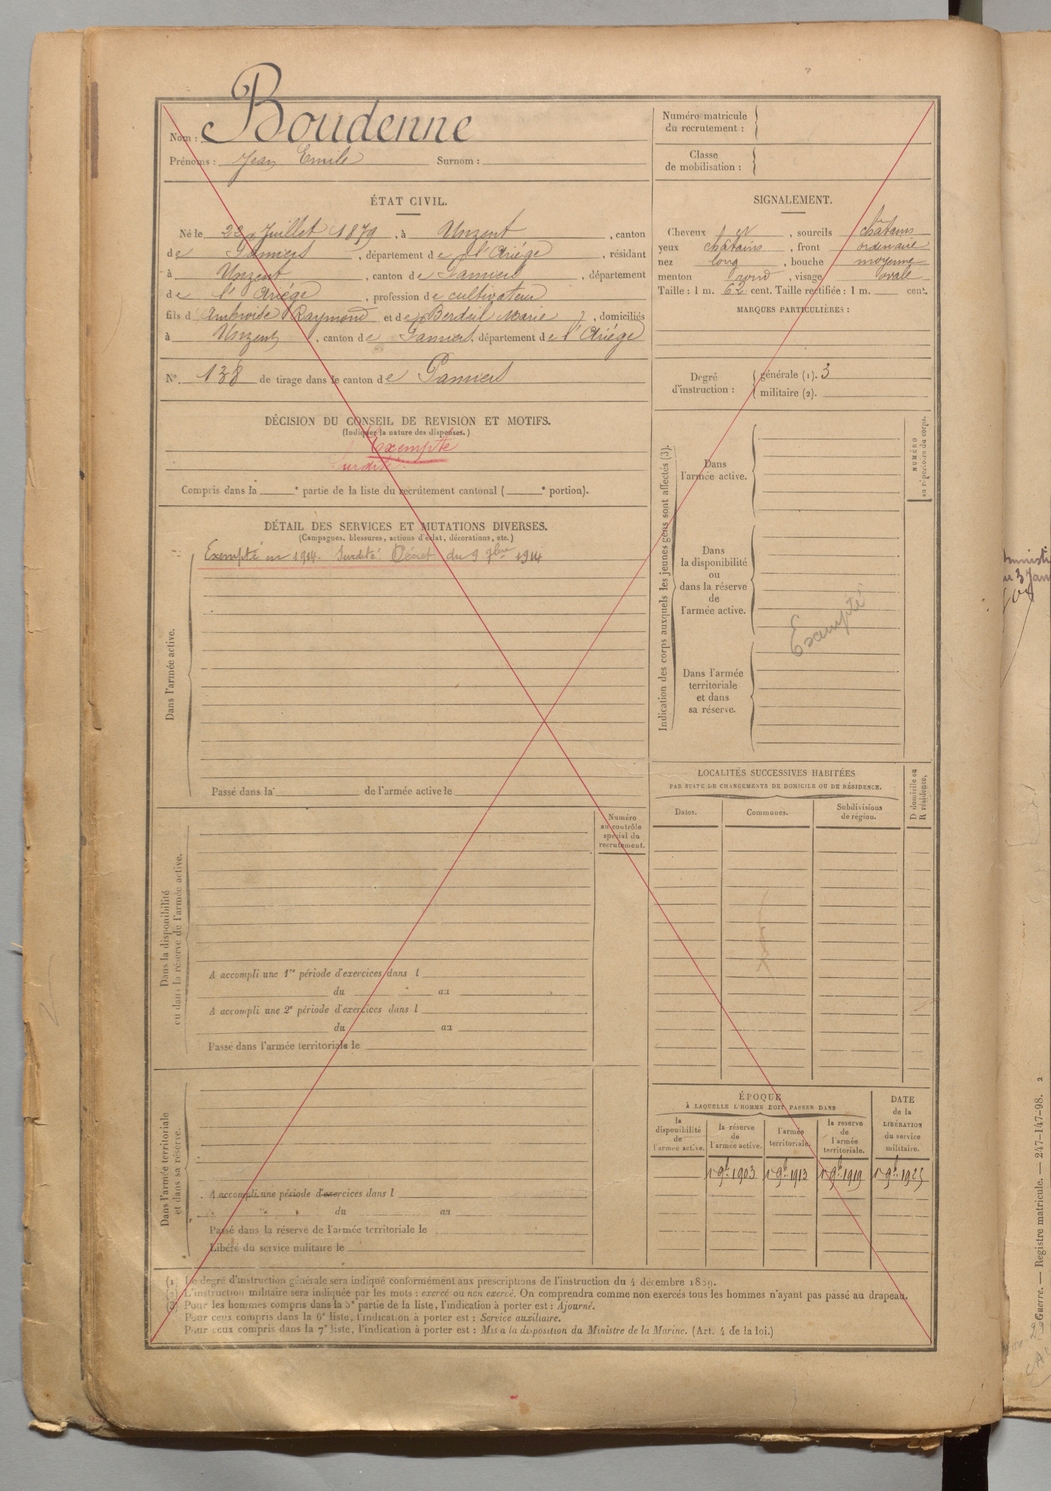 Nom : Boudenne
Prénoms : Jean Emile Surnom :
ÉTAT CIVIL.
Né le 22 Juillet 1879, à Unzent, canton
de Pamiers, département de l'Ariége, résidant
à Unzent, canton de Pamiers, département
de l'Ariége, profession de cultivateur
fils d'Ambroise Raymond et de Berdeil Marie, domiciliés
à Unzent, canton de Pamiers, département de l'Ariége
N° 138 de tirage dans le canton de Pamiers
DÉCISION DU CONSEIL DE REVISION ET MOTIFS.
(Indiquer la nature des dispenses.)
Exempté
surdité
Compris dans la ° partie de la liste du recrutement cantonal ( ° portion).
DÉTAIL DES SERVICES ET MUTATIONS DIVERSES.
(Campagnes, blessures, actions d'éclat, décorations, etc.)
Exempté en 1914. Surdité Décret du 9 7bre 1914
Dans l'armée active.
Passé dans la de l'armée active le
Numéro
au contrôle
spécial du
recrutement.
Dans la disponibilité
ou dans la réserve de l'armée active.
A accompli une 1re période d'exercices dans l
du au
A accompli une 2e période d'exercices dans l
du au
Passé dans l'armée territoriale le
Dans l'armée territoriale
et dans sa réserve.
A accompli une période d'exercices dans l
du au
Passé dans la réserve de l'armée territoriale le
Libéré du service militaire le
Numéro matricule
du recrutement :
Classe
de mobilisation :
SIGNALEMENT.
Cheveux et, sourcils châtains
yeux châtains, front ordinaire
nez long, bouche moyenne
menton rond, visage ovale
Taille : 1 m. 62 cent. Taille rectifiée : 1 m. cent.
MARQUES PARTICULIÈRES :
Degré
d'instruction :
générale (1). 3
militaire (2).
Indication des corps auxquels les jeunes gens sont affectés (3).
NUMÉRO
au répertoire du corps.
Dans
l'armée active.
Dans
la disponibilité
ou
dans la réserve
de
l'armée active.
Exempté
Dans l'armée
territoriale
et dans
sa réserve.
LOCALITÉS SUCCESSIVES HABITÉES
PAR SUITE DE CHANGEMENTS DE DOMICILE OU DE RÉSIDENCE.
Dates. Communes. Subdivisions
de région.
D domicile ou
R résidence.
ÉPOQUE
À LAQUELLE L'HOMME DOIT PASSER DANS
la
disponibilité
de
l'armée active.
la réserve
de
l'armée active.
l'armée
territoriale.
la réserve
de
l'armée
territoriale.
DATE
de la
LIBÉRATION
du service
militaire.
1er 9b 1903 1er 9b 1913 1er 9b 1919 1er 9b 1925
(1) Le degré d'instruction générale sera indiqué conformément aux prescriptions de l'instruction du 4 décembre 1889.
(2) L'instruction militaire sera indiquée par les mots : exercé ou non exercé. On comprendra comme non exercés tous les hommes n'ayant pas passé au drapeau.
(3) Pour les hommes compris dans la 5e partie de la liste, l'indication à porter est : Ajourné.
Pour ceux compris dans la 6e liste, l'indication à porter est : Service auxiliaire.
Pour ceux compris dans la 7e liste, l'indication à porter est : Mis à la disposition du Ministre de la Marine. (Art. 4 de la loi.)
Guerre. — Registre matricule. — 247-147-98. 2